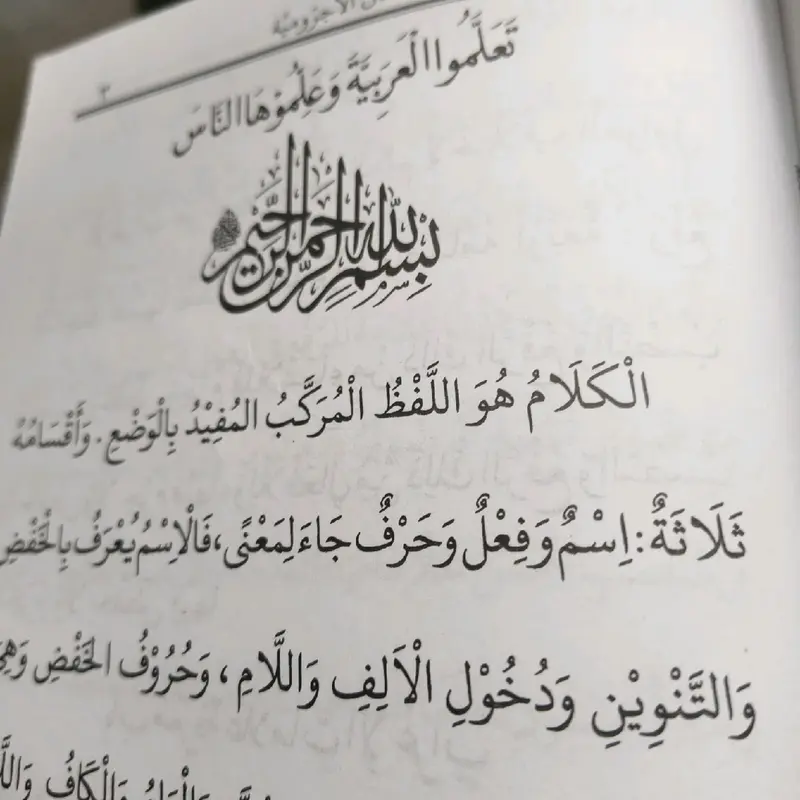 الآجرومية
٣
تَعَلَّمُوا الْعَرَبِيَّةَ وَعَلِّمُوْهَا النَّاسَ
بِسْمِ اللهِ الرَّحْمٰنِ الرَّحِيْمِ
الْكَلَامُ هُوَ اللَّفْظُ الْمُرَكَّبُ المُفِيْدُ بِالْوَضْعِ. وَأَقْسَامُهُ
ثَلَاثَةٌ: اِسْمٌ وَفِعْلٌ وَحَرْفٌ جَاءَ لِمَعْنًى، فَالْاِسْمُ يُعْرَفُ بِالْخَفْضِ
وَالتَّنْوِيْنِ وَدُخُوْلِ الْاَلِفِ وَاللَّامِ، وَحُرُوْفُ الخَفْضِ وَهِيَ